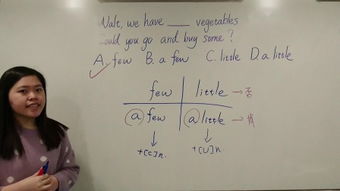 Walt, we have ____ vegetables
would you go and buy some?
A. few B. a few C. little D. a little
few little → 否
a few a little → 肯
+[C]n. +[U]n.